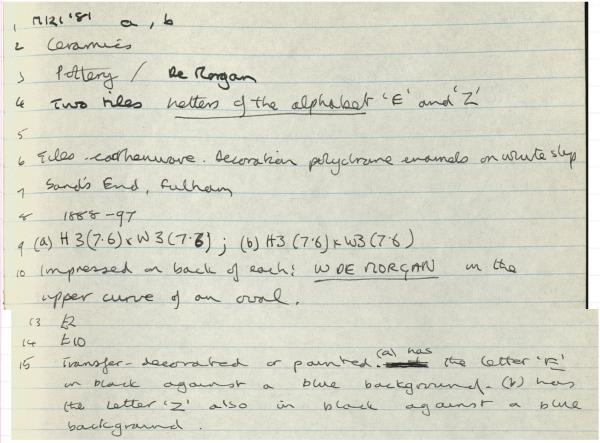 1 M121'81 a, b
2 Ceramics
3 Pottery / De Morgan
4 Two tiles Letters of the alphabet 'E' and 'Z'
5
6 Tiles. earthenware. decoration polychrome enamels on white slip
7 Sand's End, Fulham
8 1888-97
9 (a) H3(7.6) x W3(7.6); (b) H3(7.6) x W3(7.6)
10 Impressed on back of each: W DE MORGAN in the
upper curve of an oval.
13 £2
14 £10
15 Transfer-decorated or painted. (a) has the letter 'E'
in black against a blue background. (b) has
the letter 'Z' also in black against a blue
background.